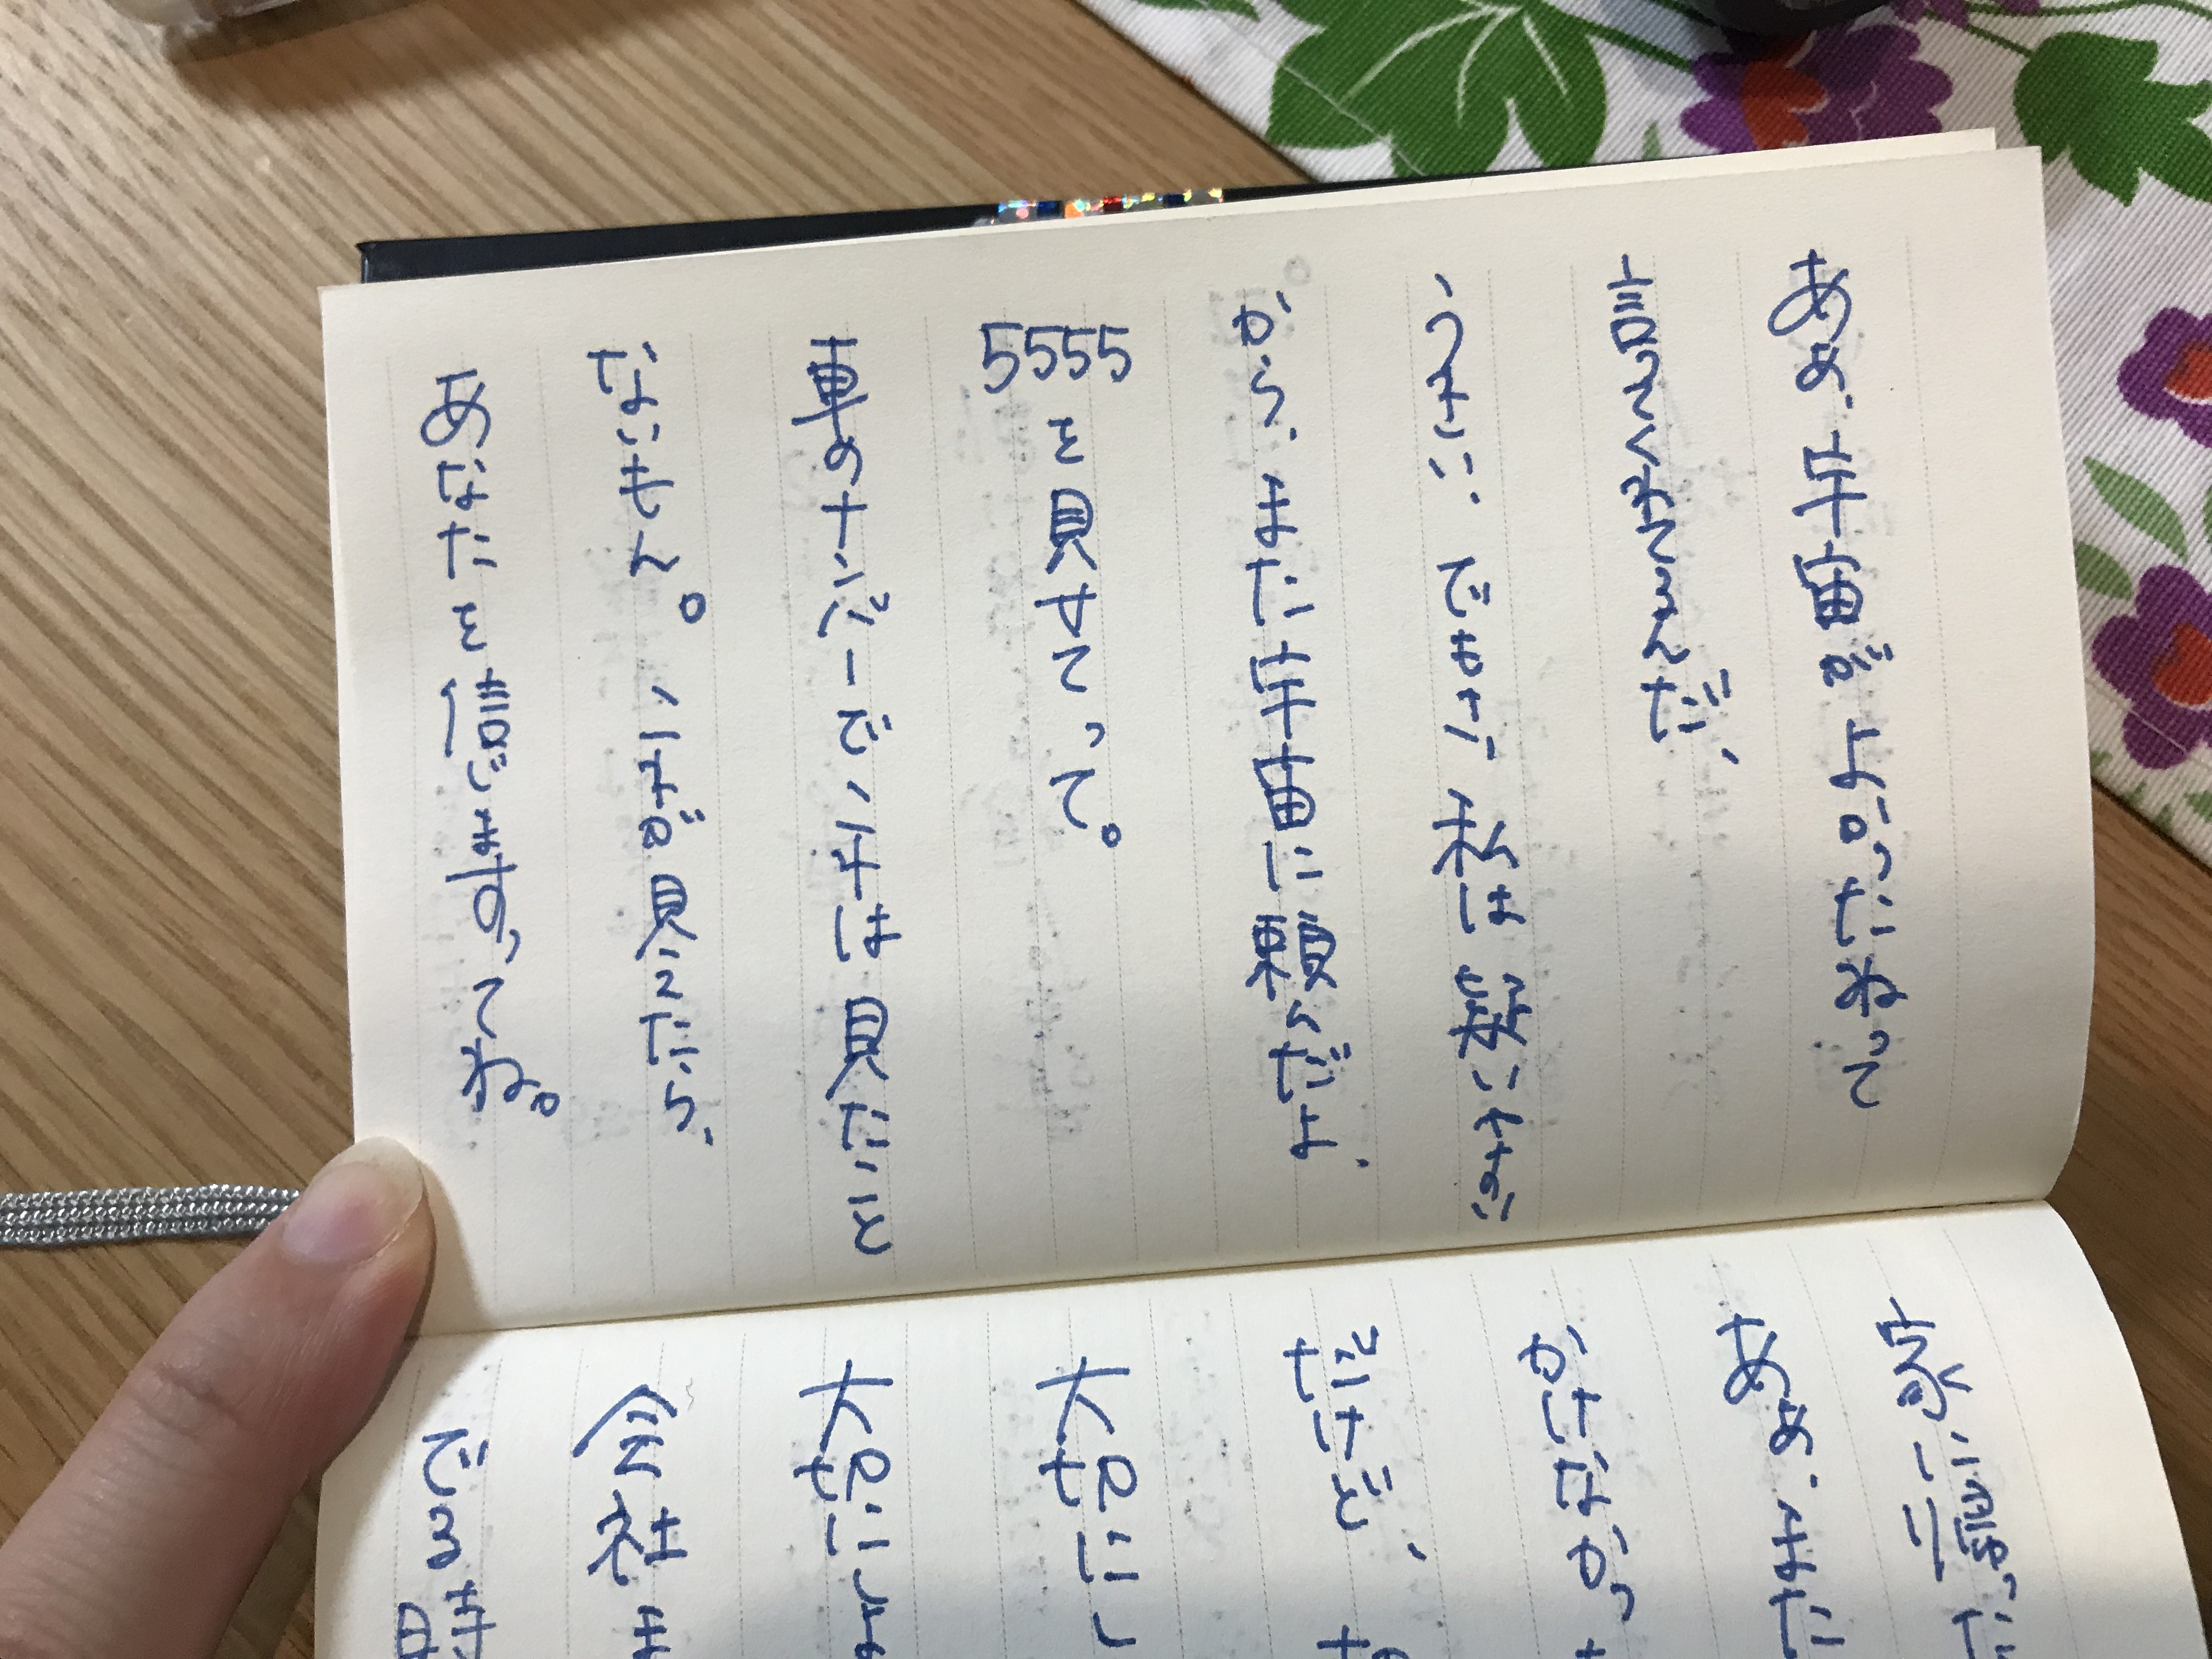 あぁ、宇宙がよかったねって
言ってくれてるんだ、
うれしい、でもさ、私は疑いぶかい
から、また宇宙に頼んだよ、
5555を見せてって。
車のナンバーで は見たこと
ないもん。 が見えたら、
あなたを信じますってね。
家に帰った
あぁ、まだ
かけなかっ
だけど、
大切にし
大切に
会社
でる時